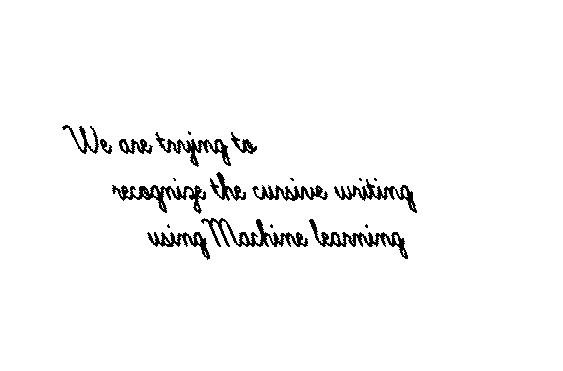 We are trying to
recognize the cursive writing
using Machine learning